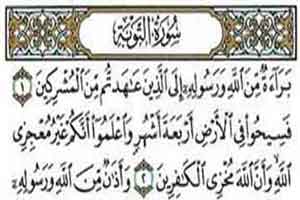 سُورَةُ التَّوْبَةِ
بَرَآءَةٌ مِّنَ ٱللَّهِ وَرَسُولِهِۦٓ إِلَى ٱلَّذِينَ عَٰهَدتُّم مِّنَ ٱلْمُشْرِكِينَ ١
فَسِيحُوا۟ فِى ٱلْأَرْضِ أَرْبَعَةَ أَشْهُرٍ وَٱعْلَمُوٓا۟ أَنَّكُمْ غَيْرُ مُعْجِزِى
ٱللَّهِ وَأَنَّ ٱللَّهَ مُخْزِى ٱلْكَٰفِرِينَ ٢ وَأَذَٰنٌ مِّنَ ٱللَّهِ وَرَسُولِهِۦٓ